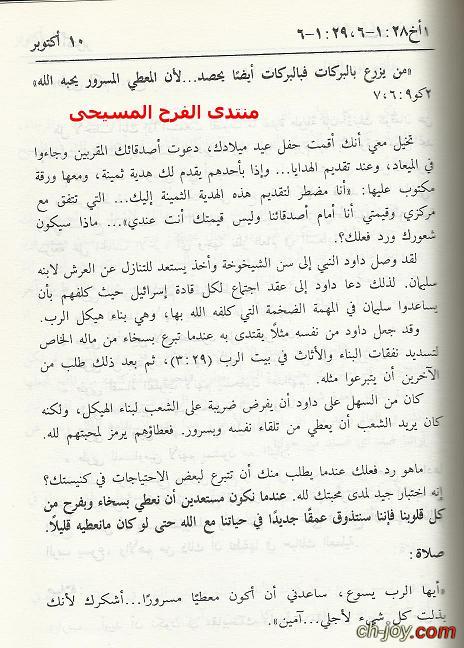 ١أخ ٢٨: ١-٦، ٢٩: ١-٦
١٠ أكتوبر
«من يزرع بالبركات فبالبركات أيضًا يحصد...لأن المعطي المسرور يحبه الله»
٢كو ٩: ٦، ٧
منتدى الفرح المسيحى
تخيل معي أنك أقمت حفل عيد ميلادك، دعوت أصدقائك المقربين وجاءوا
في الميعاد، وعند تقديم الهدايا... وإذا بأحدهم يقدم لك هدية ثمينة، ومعها ورقة
مكتوب عليها: «أنا مضطر لتقديم هذه الهدية الثمينة إليك... التي تتفق مع
مركزي وقيمتي أنا أمام أصدقائنا وليس قيمتك أنت عندي»... ماذا سيكون
شعورك ورد فعلك؟.
لقد وصل داود النبي إلى سن الشيخوخة وأخذ يستعد للتنازل عن العرش لابنه
سليمان. لذلك دعا داود إلى عقد اجتماع لكل قادة إسرائيل حيث كلفهم بأن
يساعدوا سليمان في المهمة الضخمة التي كلفه الله بها، وهي بناء هيكل الرب.
وقد جعل داود من نفسه مثلًا يقتدى به عندما تبرع بسخاء من ماله الخاص
لتسديد نفقات البناء والأثاث في بيت الرب (٢٩: ٣)، ثم بعد ذلك طلب من
الآخرين أن يتبرعوا مثله.
كان من السهل على داود أن يفرض ضريبة على الشعب لبناء الهيكل، ولكنه
كان يريد الشعب أن يعطي من تلقاء نفسه وبسرور. فعطاؤهم يرمز لمحبتهم لله.
ماهو رد فعلك عندما يطلب منك أن تتبرع لبعض الاحتياجات في كنيستك؟
إنه اختبار جيد لمدى محبتك لله. عندما نكون مستعدين أن نعطي بسخاء وبفرح من
كل قلوبنا فإننا سنتذوق عمقًا جديدًا في حياتنا مع الله حتى لو كان مانعطيه قليلًا.
صلاة:
«أيها الرب يسوع، ساعدني أن أكون معطيًا مسرورًا...أشكرك لأنك
بذلت كل شيء لأجلي...آمين».
ch-joy.com